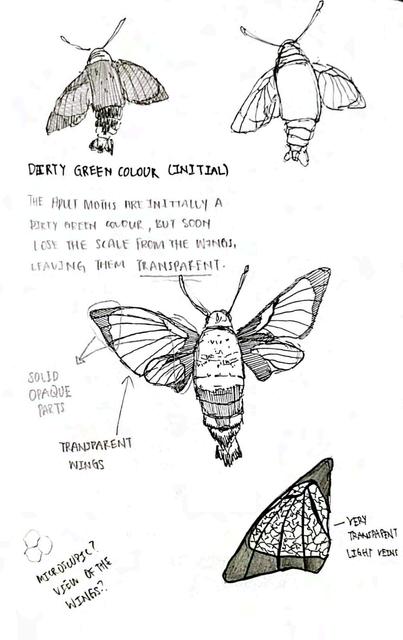 DIRTY GREEN COLOUR (INITIAL)
THE ADULT MOTHS ARE INITIALLY A
DIRTY GREEN COLOUR, BUT SOON
LOSE THE SCALE FROM THE WINGS,
LEAVING THEM TRANSPARENT.
SOLID
OPAQUE
PARTS
TRANSPARENT
WINGS
VERY
TRANSPARENT
LIGHT VEINS
MICROSCOPIC?
VIEW OF THE
WINGS?